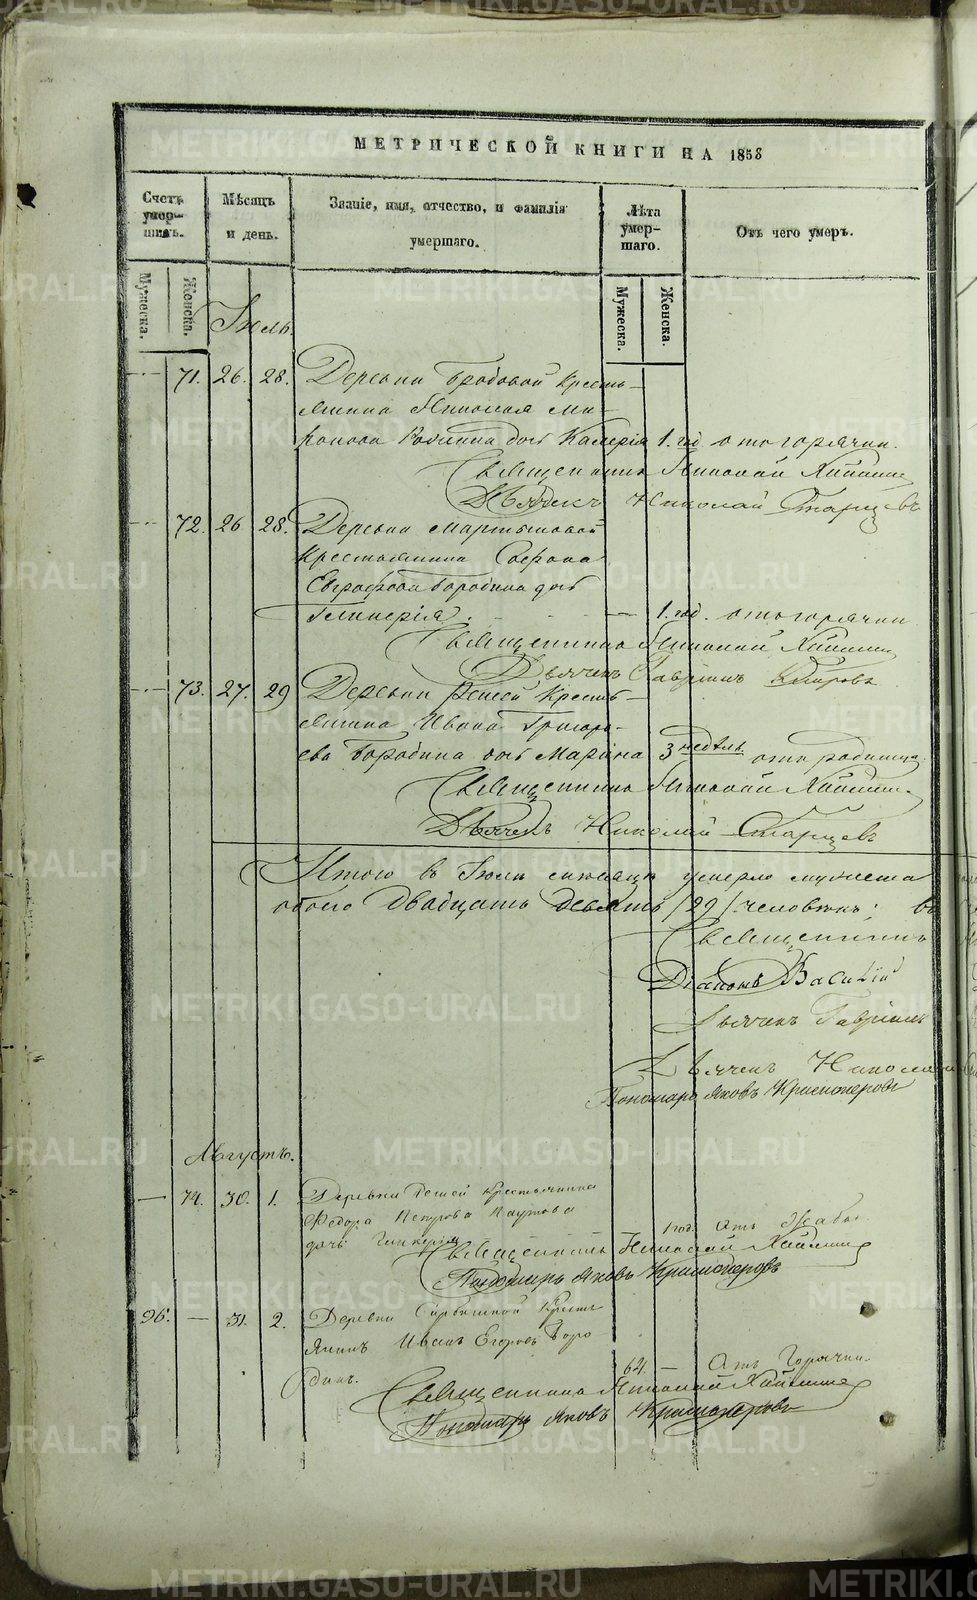 МЕТРИЧЕСКОЙ КНИГИ НА 1853
Счетъ умер-шихъ.
Мѣсяцъ и день.
Званіе, имя, отчество, и фамилія умершаго.
Лѣта умер-шаго.
Отъ чего умеръ.
Мужеска.
Женска.
Мужеска.
Женска.
Іюль
71. 26. 28. Деревни Бродовой Кресть-
янина Николая Ми-
ронова дочь Валерія 1. год. отъ горячки.
Священникъ Николай
Дьячекъ Николай Старцевъ
72. 26 28. Деревни Мартыновой
Крестьянина
Евграфова Бородина дочь
Гликерія. — 1. год. отъ горячки
Священникъ Николай
Дьячекъ Гавріилъ
73. 27. 29 Деревни Кресть-
янина Ивана Григорь-
ева Бородина дочь Марина 3 недѣль отъ родимца.
Священникъ Николай
Дьячекъ Николай Старцевъ
Итого въ Іюлѣ мѣсяцѣ умерло мужеска
обоего двадцать девять /29/ человѣкъ;
Священникъ
Діаконъ Василій
Дьячекъ Гавріилъ
Дьячекъ Николай
Пономарь Яковъ Красноперовъ
Августъ.
— 74. 30. 1. Деревни крестьянина
Федора Петрова Паутова
дочь Гликерія 1 год. Отъ Жабы.
Священникъ Николай
Пономарь Яковъ Красноперовъ
96. — 31. 2. Деревни Кресть
янинъ Иванъ Егоровъ Боро
динъ. 64. — Отъ Горячки.
Священникъ Николай
Пономарь Яковъ Красноперовъ
METRIKI.GASO-URAL.RU